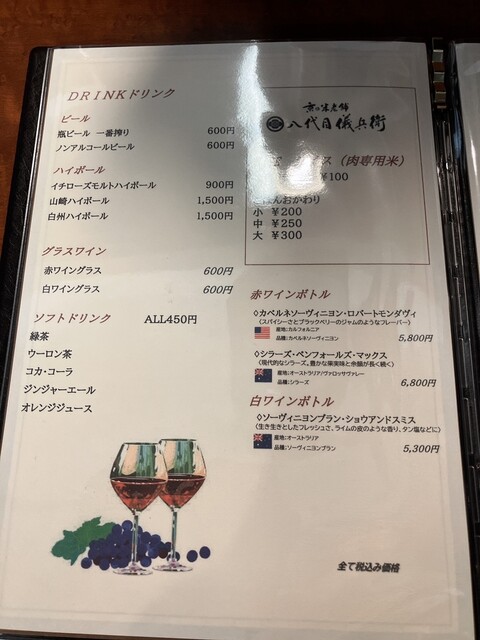 DRINKドリンク
ビール
瓶ビール 一番搾り 600円
ノンアルコールビール 600円
ハイボール
イチローズモルトハイボール 900円
山崎ハイボール 1,500円
白州ハイボール 1,500円
グラスワイン
赤ワイングラス 600円
白ワイングラス 600円
ソフトドリンク ALL450円
緑茶
ウーロン茶
コカ・コーラ
ジンジャーエール
オレンジジュース
京の米老舗
八代目儀兵衛
イス（肉専用米）
¥100
はんおかわり
小 ¥200
中 ¥250
大 ¥300
赤ワインボトル
◇カベルネソーヴィニヨン・ロバートモンダヴィ
（スパイシーさとブラックベリーのジャムのようなフレーバー）
産地:カルフォルニア
品種:カベルネソーヴィニヨン 5,800円
◇シラーズ・ペンフォールズ・マックス
（現代的なシラーズ。豊かな果実味と余韻が長く続く）
産地:オーストラリア/ヴァロッサヴァレー
品種:シラーズ 6,800円
白ワインボトル
◇ソーヴィニヨンブラン・ショウアンドスミス
（生き生きとしたフレッシュさ、ライムの皮のような香り、タン塩などに）
産地:オーストラリア
品種:ソーヴィニヨンブラン 5,300円
全て税込み価格